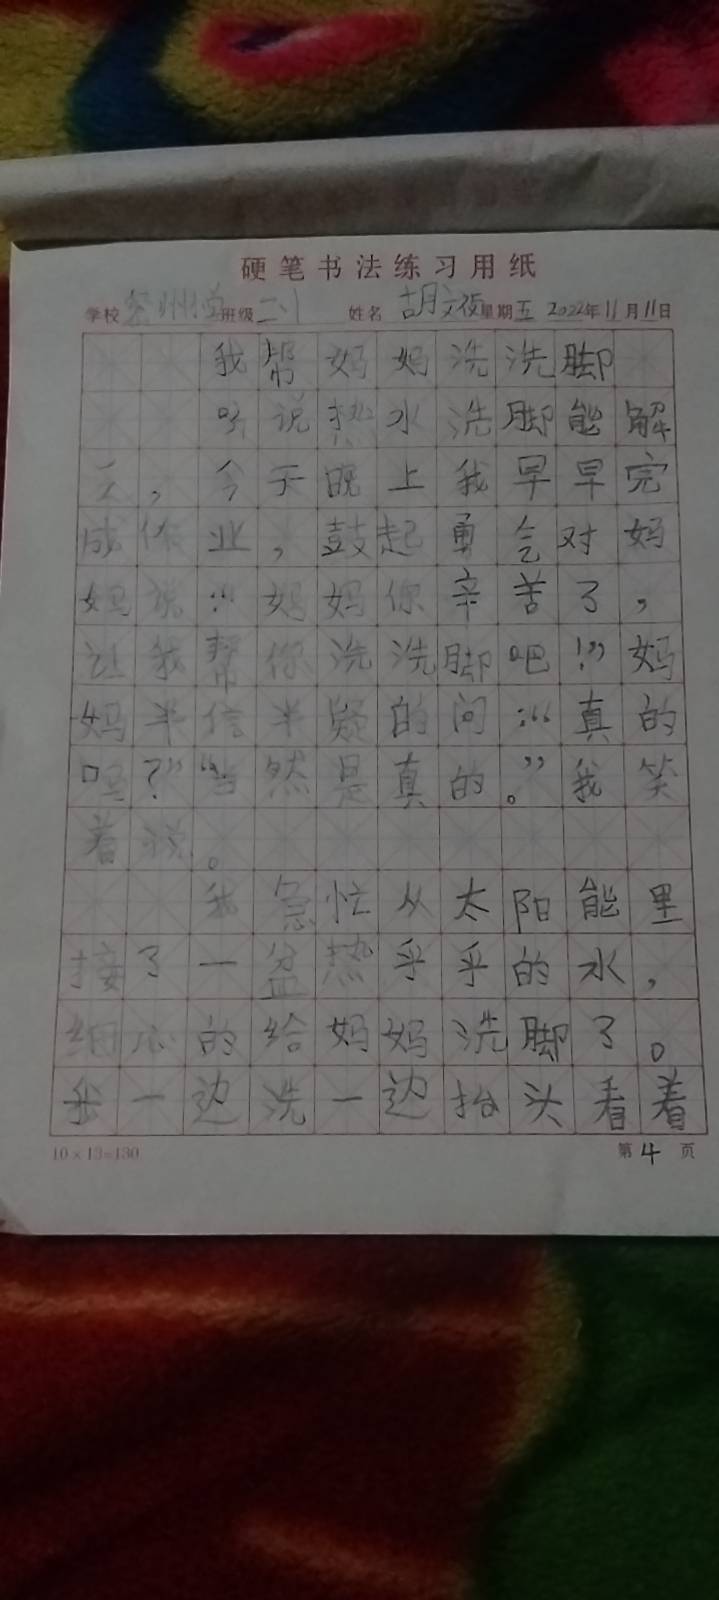 硬笔书法练习用纸
学校 班级 二 姓名 胡 星期五 2022年11月11日
我帮妈妈洗洗脚
听说热水洗脚能解
乏，今天晚上我早早完
成作业，鼓起勇气对妈
妈说：“妈妈你辛苦了，
让我帮你洗洗脚吧！”妈
妈半信半疑的问：“真的
吗？”“当然是真的。”我笑
着说。
我急忙从太阳能里
接了一盆热乎乎的水，
细心的给妈妈洗脚了。
我一边洗一边抬头看着
10×13=130
第4页